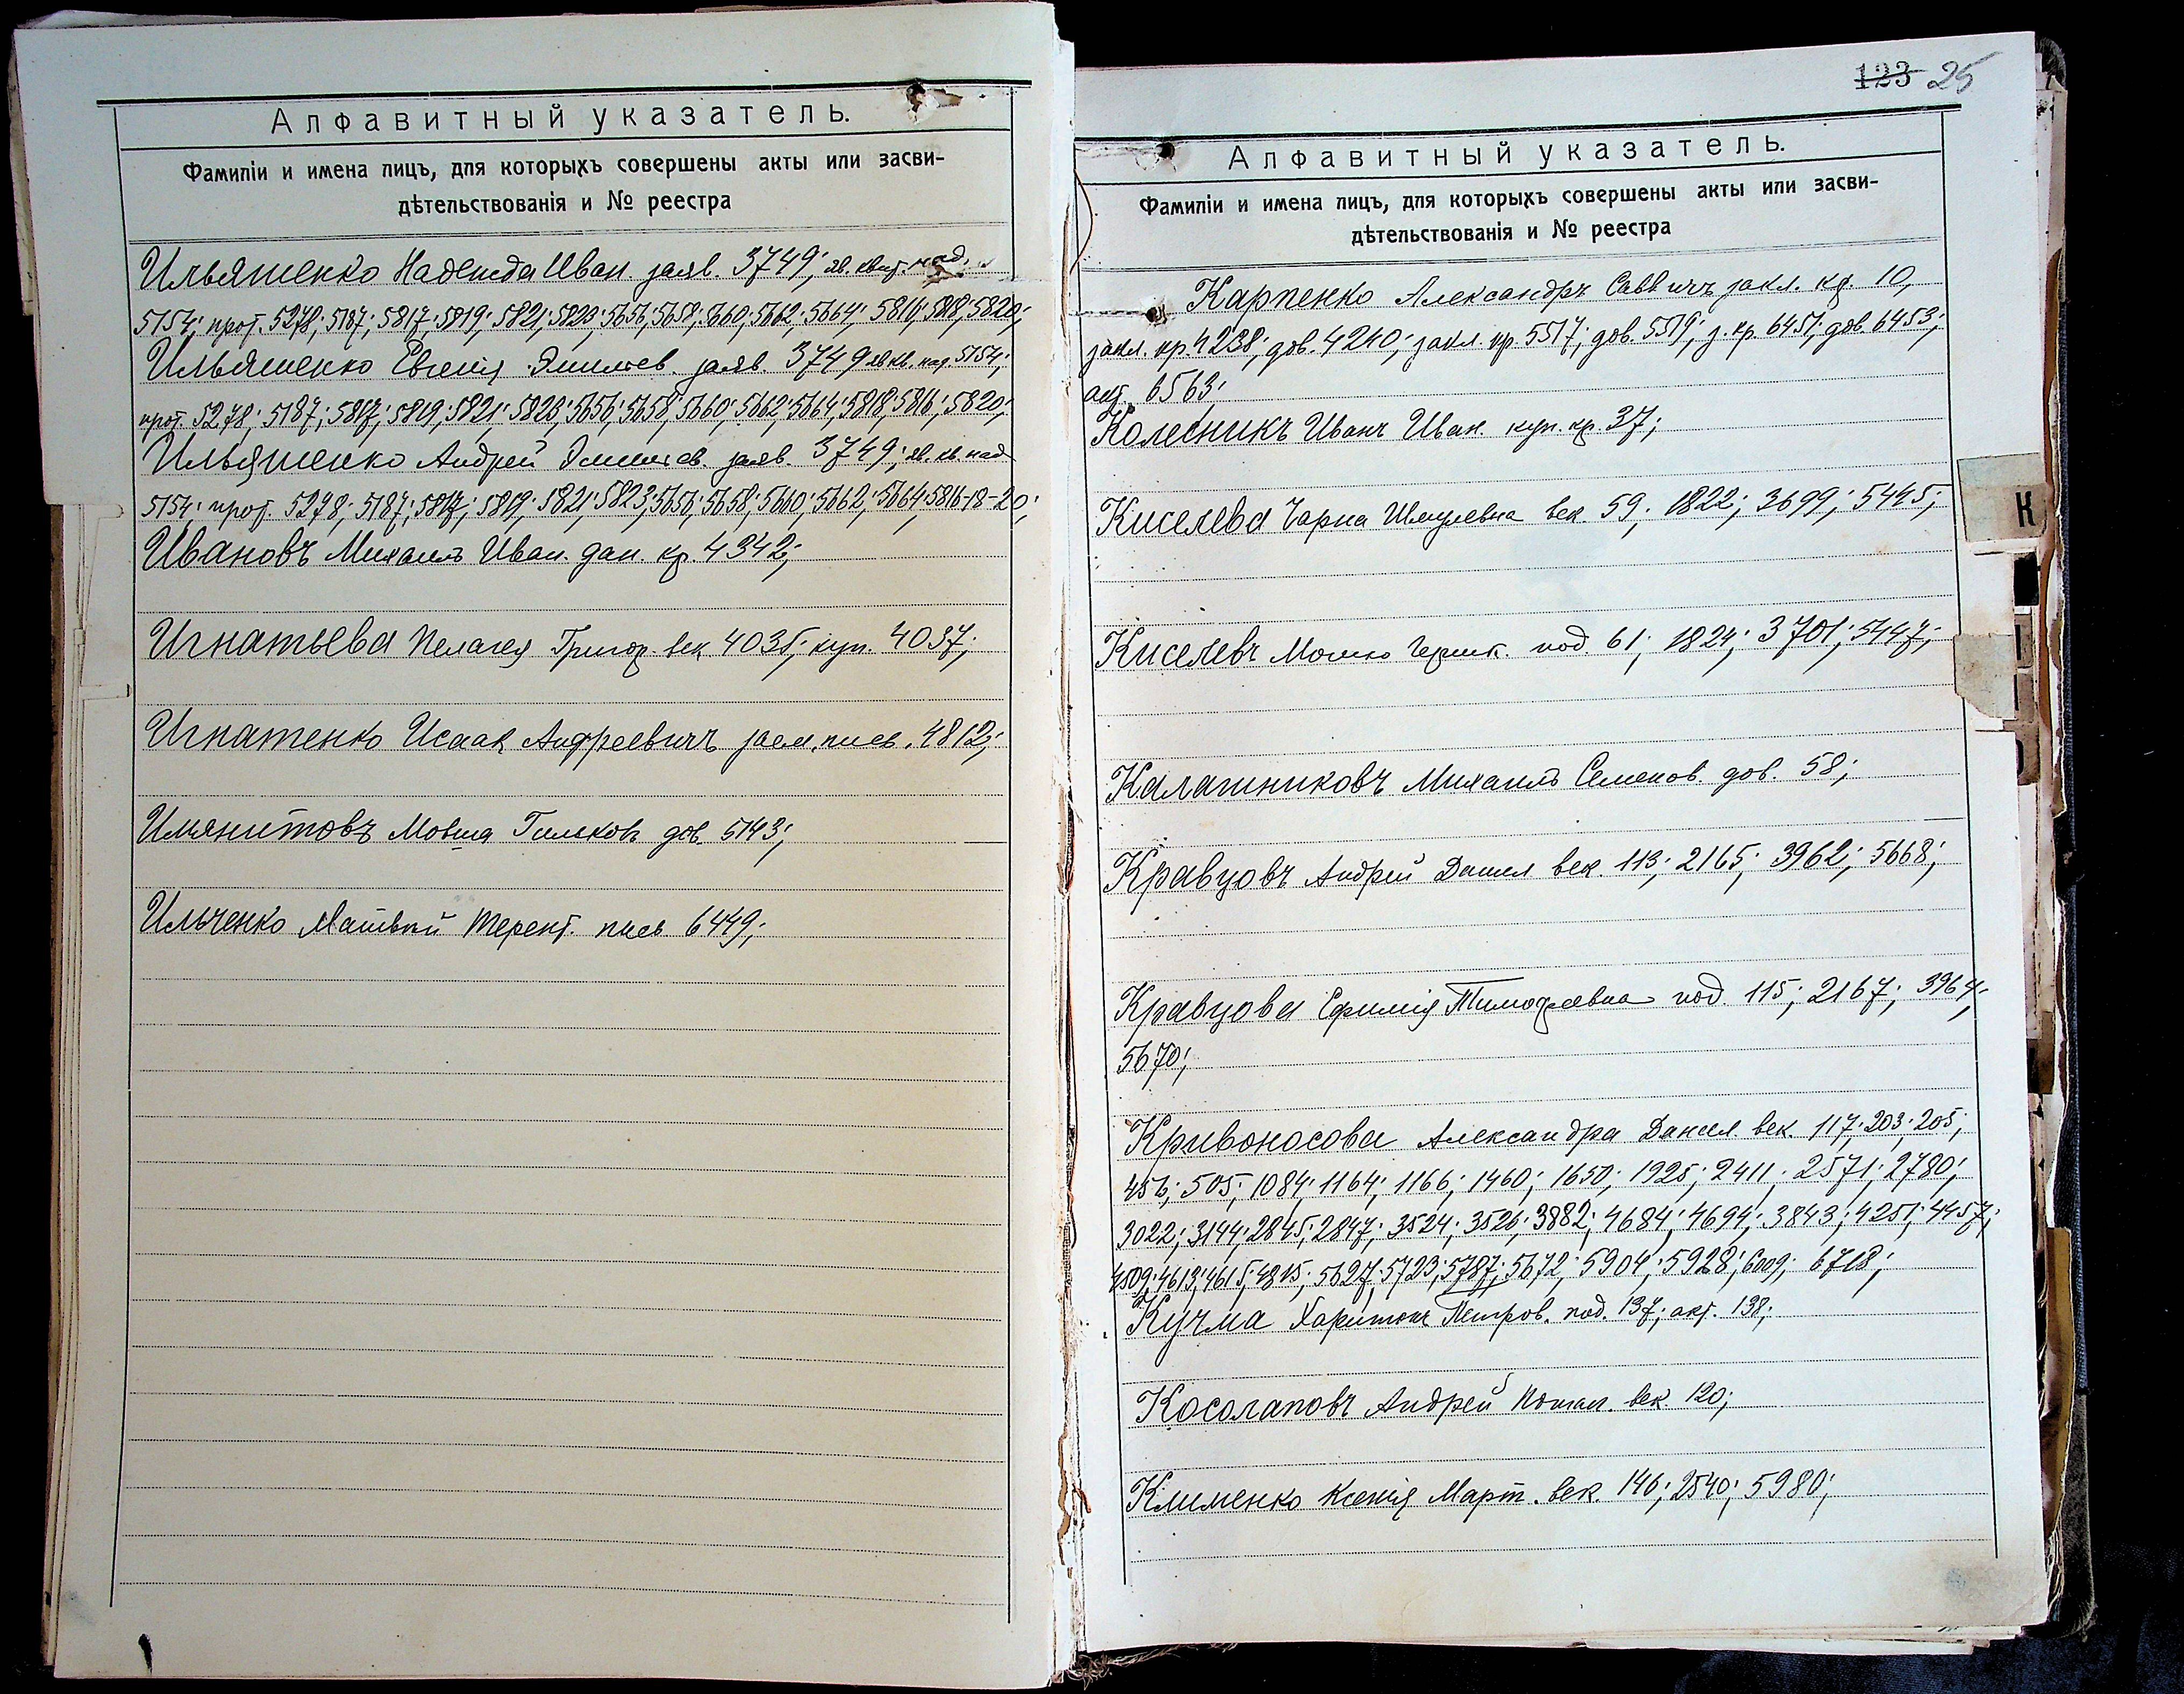 Алфавитный указатель.
Фамиліи и имена лицъ, для которыхъ совершены акты или засви-
дѣтельствованія и № реестра
Ильяшенко Надежда Иван. заяв. 3749; яв. квит. над.
5154; прот. 5278; 5187; 5817; 5819; 5821; 5823; 5656; 5658; 5660; 5662; 5664; 5816; 5818; 5820;
Ильяшенко Евгенія Эмильев. заяв. 3749 яв. кв. над. 5154;
прот. 5278; 5187; 5817; 5819; 5821; 5823; 5656; 5658; 5660; 5662; 5664; 5818; 5816; 5820;
Ильяшенко Андрей Эмильев. заяв. 3749; яв. кв. над
5154; прот. 5278; 5187; 5817; 5819; 5821; 5823; 5656; 5658; 5660; 5662; 5664; 5816-18-20;
Ивановъ Михаилъ Иван. дан. кр. 4342;
Игнатьева Пелагея Григор. век. 4035; куп. 4037;
Игнатенко Исаак Андреевичъ заем. письм. 4812;
Имянитовъ Мовша Гильков. дов. 5143;
Ильченко Матвѣй Терент. письм 6449;
123 25
Алфавитный указатель.
Фамиліи и имена лицъ, для которыхъ совершены акты или засви-
дѣтельствованія и № реестра
Карпенко Александръ Саввичъ закл. кр. 10,
закл. кр. 4238; дов. 4240; закл. кр. 5517; дов. 5519; з. кр. 6451; дов. 6453;
акт. 6563;
Колесникъ Иванъ Иван. куп. кр. 37;
Киселева Чарна Шмулевна век. 59; 1822; 3699; 5445;
Киселевъ Мошко под. 61; 1824; 3701; 5447;
Калашниковъ Михаилъ Семенов. дов. 58;
Кравцовъ Андрей Данил век. 113; 2165; 3962; 5668;
Кравцова Ефимія Тимофеевна под. 115; 2167; 3964;
5670;
Кривоносова Александра Данил. век. 117; 203; 205;
456; 505; 1084; 1164; 1166; 1460; 1650; 1925; 2411; 2571; 2780;
3022; 3144; 2845; 2847; 3524; 3526; 3882; 4684; 4694; 3843; 4251; 4457;
4509; 4613; 4615; 4815; 5627; 5723; 5787; 5672; 5904; 5928; 6009; 6718;
Кучма Харитонъ Петров. под. 137; акт. 138;
Косолаповъ Андрей Потап. век. 120;
Клименко Ксенія Март. век. 146; 2540; 5980;
К